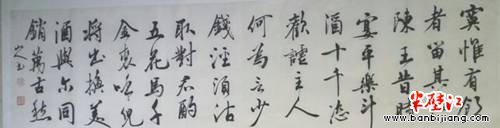 寞惟有飲
者留其
陳王昔時
宴平樂斗
酒十千恣
歡謔主人
何為言少
錢徑須沽
取對君酌
五花馬千
金裘呼兒
將出換美
酒與爾同
銷萬古愁
半壁江
www.banbijiang.com